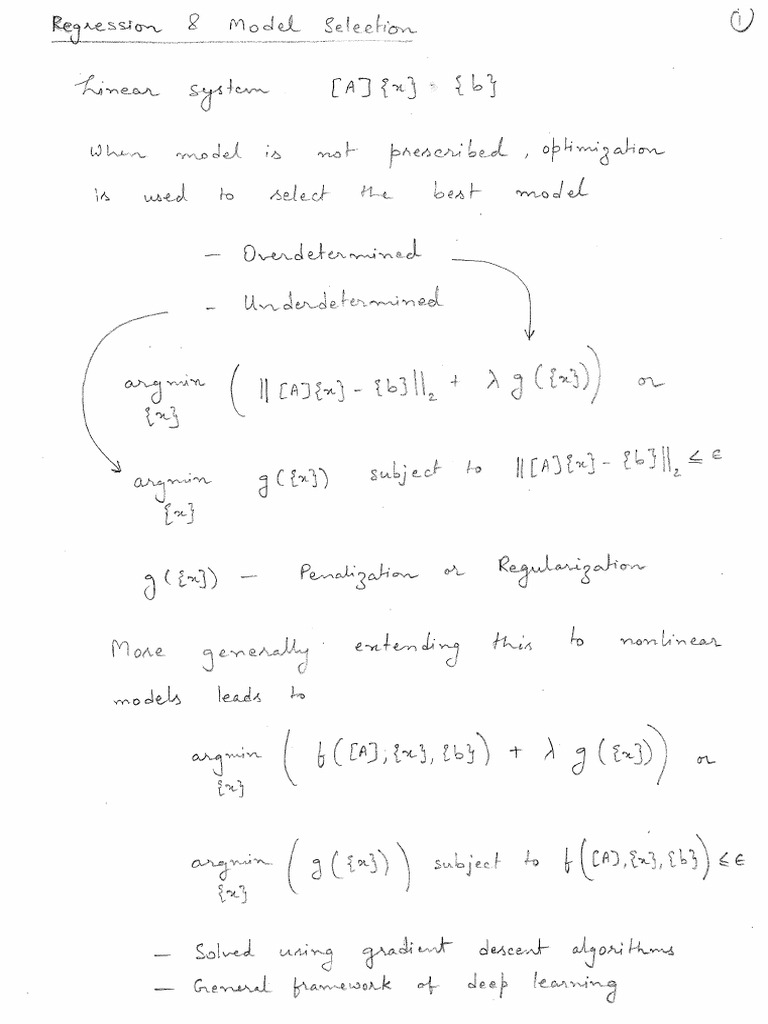 Regression & Model Selection ①
Linear system [A]{x} = {b}
When model is not prescribed, optimization
is used to select the best model
– Overdetermined
– Underdetermined
argmin ( ||[A]{x} – {b}||₂ + λ g({x})) or
{x}
argmin g({x}) subject to ||[A]{x} – {b}||₂ ≤ ϵ
{x}
g({x}) – Penalization or Regularization
More generally extending this to nonlinear
models leads to
argmin ( f([A], {x}, {b}) + λ g({x})) or
{x}
argmin ( g({x})) subject to f([A], {x}, {b}) ≤ ϵ
{x}
– Solved using gradient descent algorithms
– General framework of deep learning